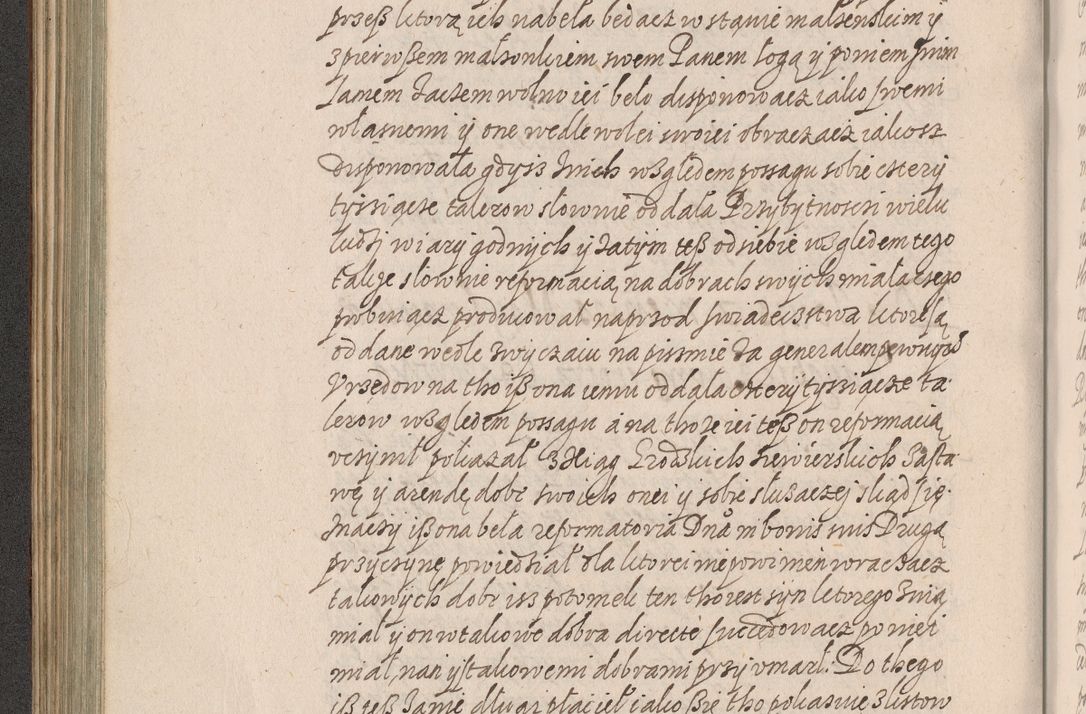 przeß ktorą ich nabeła bedacz w stanie małzenskim y
z pierwßem małzonkiem swem Panem Łogą y poniem s nim
Janem Zaczem wolno iei beło disponowacz iako swemi
własnemi y one wedle wolei swoiei obraczacz iakosz
Disponowała gdysz znich względem possagu sobie cztery
tyssiącze talerow słownie oddała Przybytnosczi wielu
ludzj wiary godnych y zatym teß odsiebie względem tego
takze słownie reformacią na dobrach swych miała czego
probuiącz producował naprzod swiadecztwa ktore są
oddane wedle zwyczaiu na pissmie za generalem pewnych
Vrzędow na tho iß ona iemu oddala cztery tyssiącze ta
lerow względem possagu a na thoze iei teß on reformacią
vczynił pokazał z Xiąg Grodzkich siewierskich Zasta
wę y arendę dobr swoich onei y sobie słuzaczej skąd się
znaczy iß ona beła reformatoria Dna in bonis suis Drugą
przyczynę powiedział dla ktorei nie powinien wraczacz
takowych dobr isz potomek ten tho iest syn ktorego znią
miał y on w takowe dobra directe succedowacz po niei
miał, nan ystakowemi dobrami przy vmarł: Do thego
iß teß Janie długi płacieł iako ßie tho pokazuie z listow